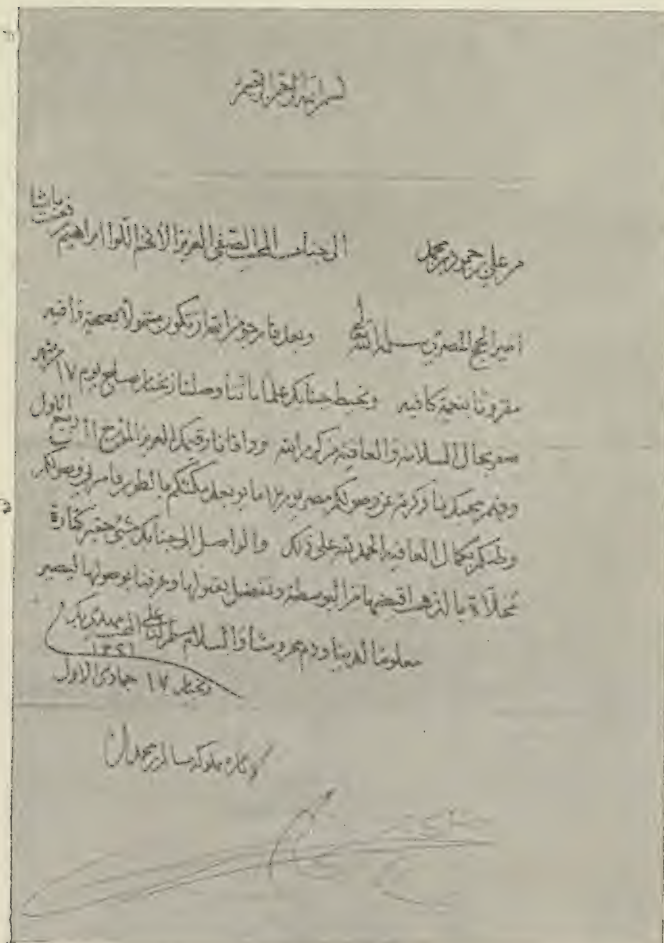 بسم الله الرحمن الرحيم
من علي بن حمود بن محمد الى جناب المحب الصفي العزيز الأفخم اللوا ابراهيم رفعت باشا
امير الحج المصري سلمه الله تعالى وبعد فأرجو من الله ان تكون مشمولا بصحة وافيه
مقرونا بنعمة كافيه ونحيط جنابكم علما باننا وصلنا زنجبار صباح يوم ١٧ من شهر
صفر بحال السلامة والعافية من كرم الله ووافانا رقيمكم العزيز المؤرخ ربيع الاول
وفهم محبكم بما ذكرتم عن وصولكم مصر يوم مايو بعد مكثكم بالطور وسرني وصولكم
وطنكم بكمال العافية الحمد لله على ذلك والواصل الى جنابكم شيء حقير
محلاة بالذهب اقبضها من البوسطة وتفضل بقبولها وعرفنا بوصولها ليصير
معلوما لدينا ودم محروسا والسلام
١٣٢١
زنجبار ١٧ جمادى الاول